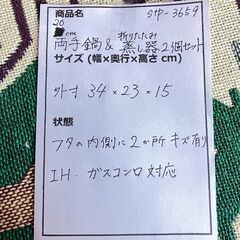 商品名 stp-3659
20
cm 折りたたみ
両手鍋 & 蒸し器 2個セット
サイズ (幅×奥行×高さ cm)
外寸 34×23×15
状態
フタの内側に2か所キズ有り
IH・ガスコンロ対応